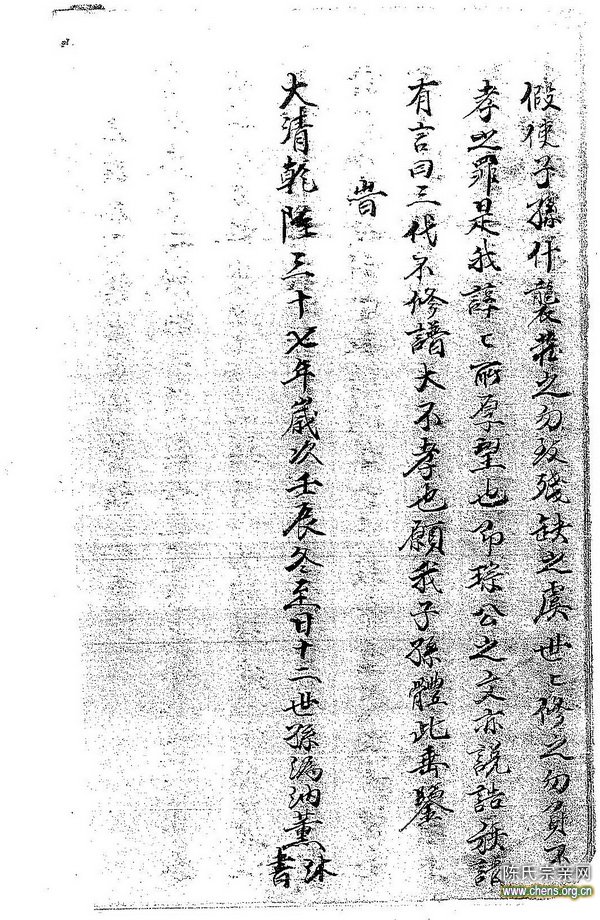 假使子孫什襲藏之勿致殘缺之虞世〻修之勿負不
孝之罪是我諄〻所厚望也即琮公之文亦說譜
有言曰三代不修譜大不孝也願我子孫體此垂鑒
峕
大清乾隆三十七年歲次壬辰冬至日十二世孫溈汭薰沐
書
陈氏宗亲网
www.chens.org.cn